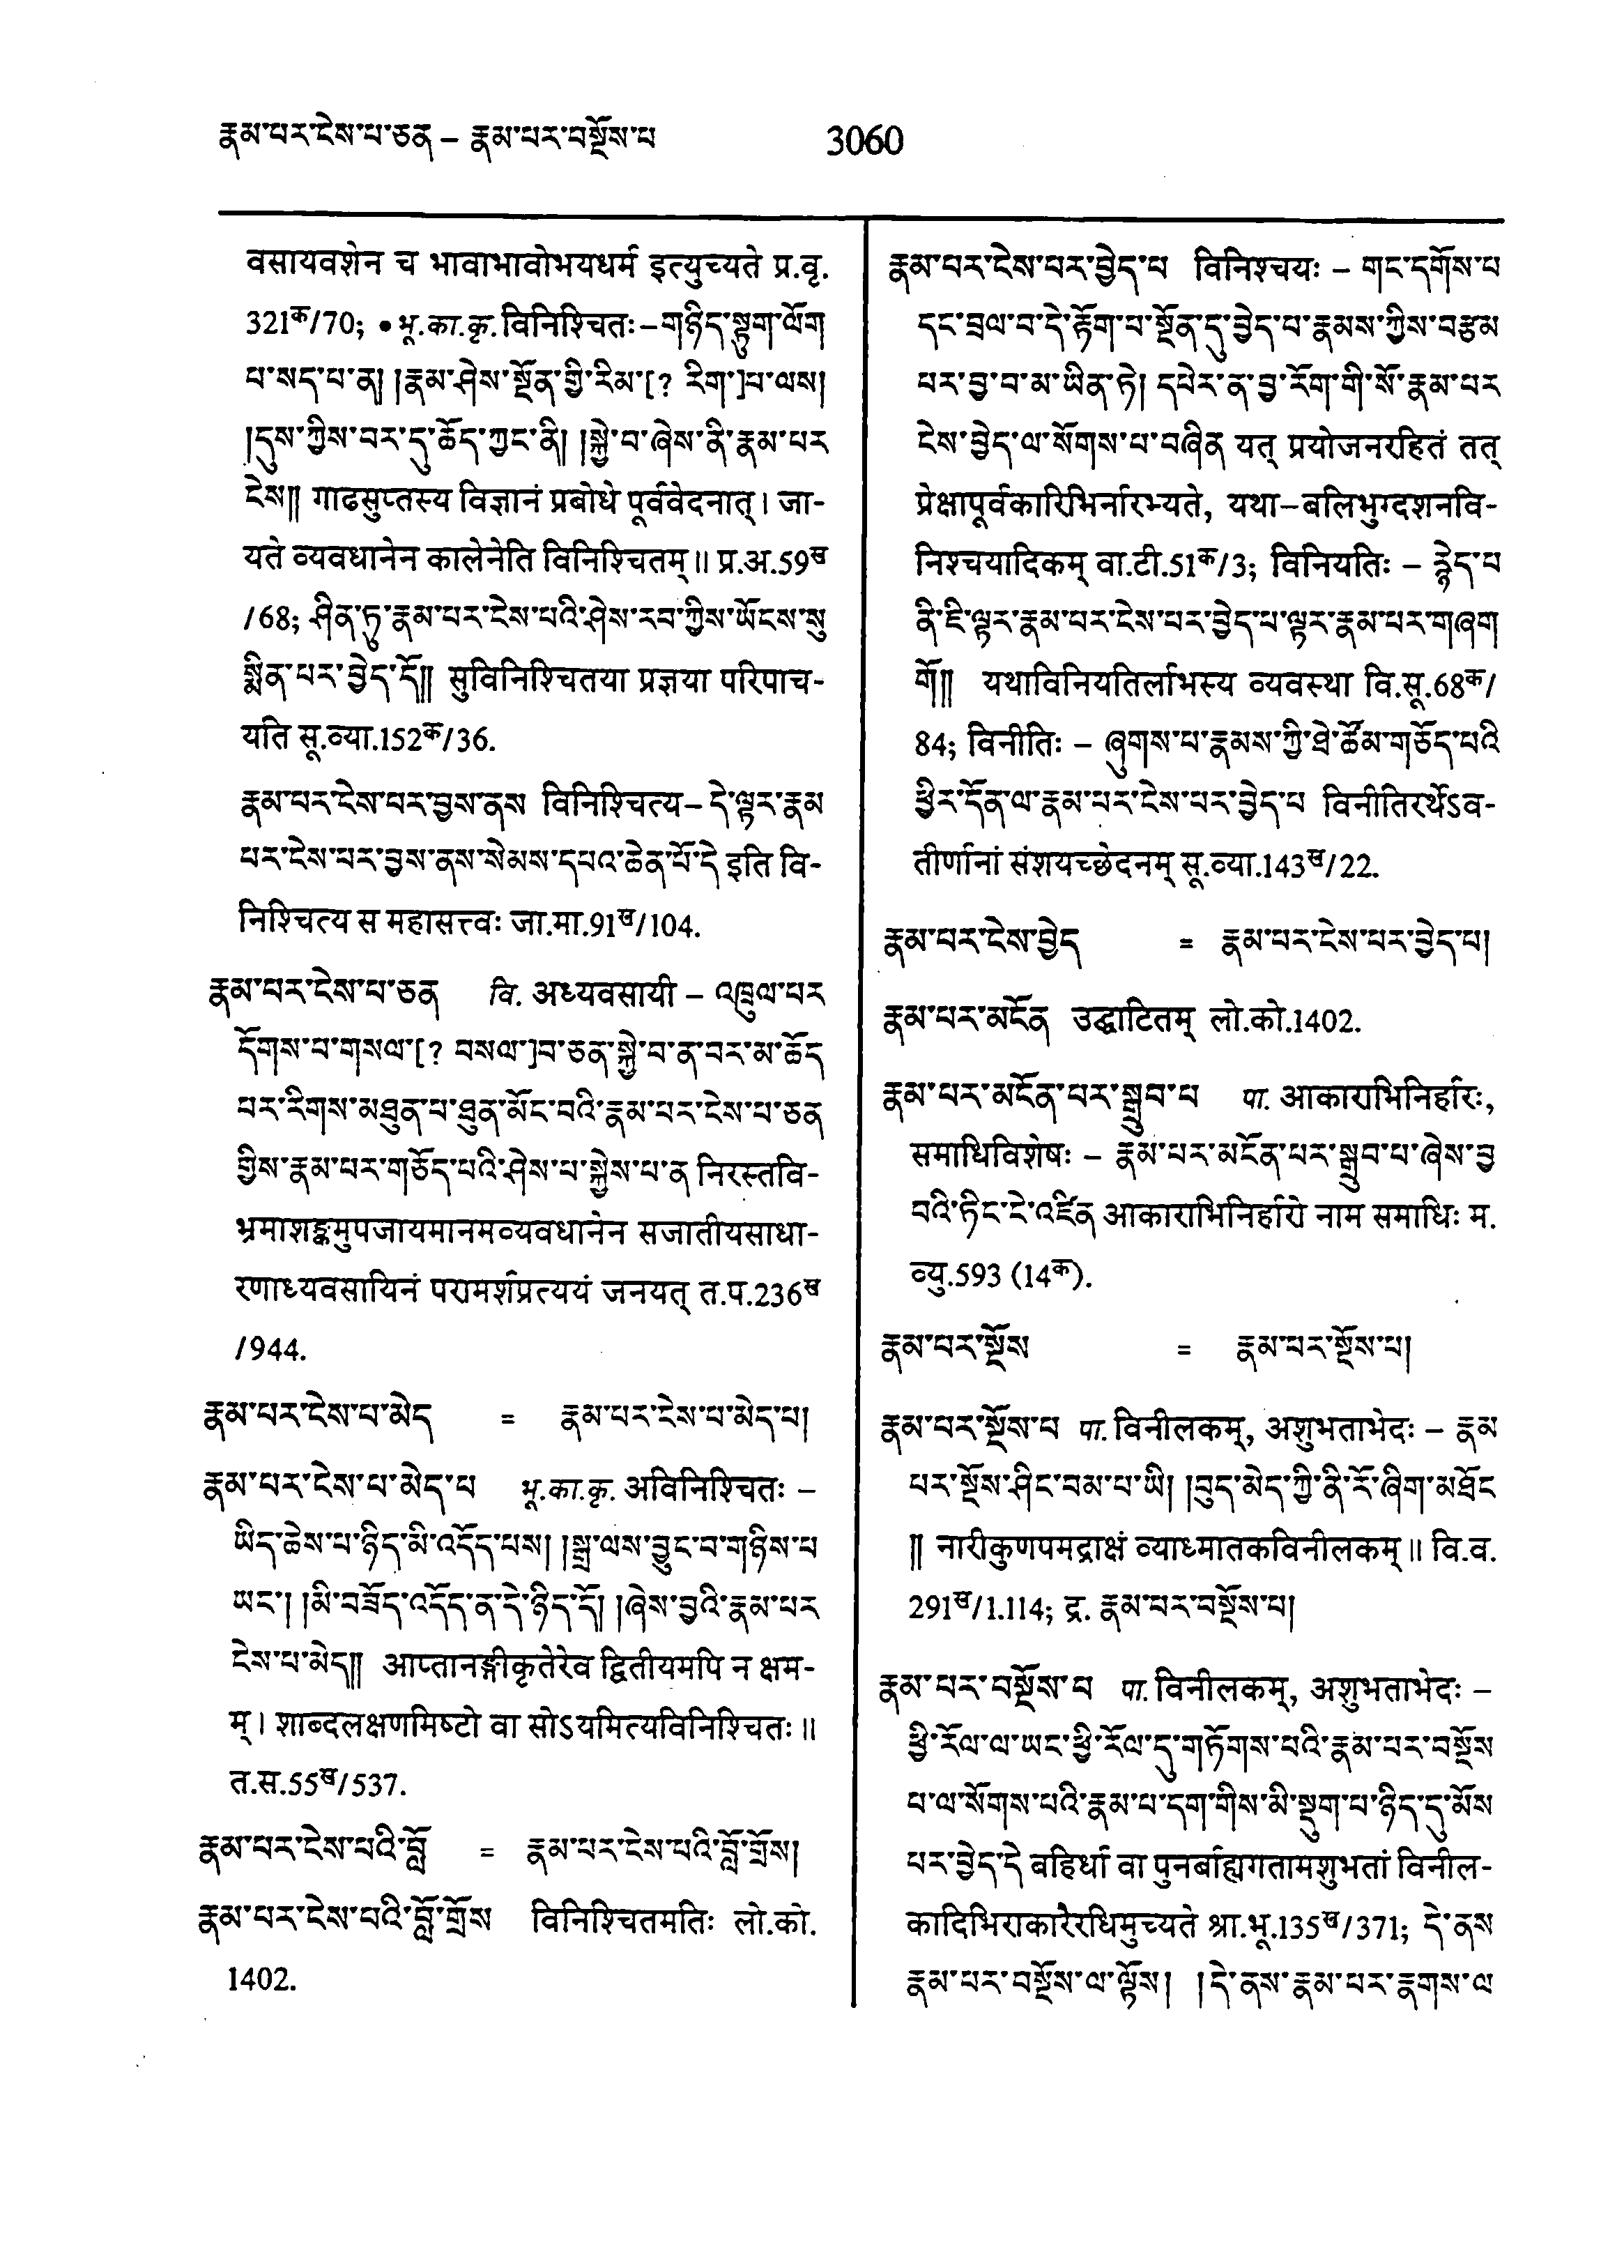 རྣམ་པར་ངེས་པ་ཅན – རྣམ་པར་བསྔོས་པ 3060
वसायवशेन च भावाभावोभयधर्म इत्युच्यते प्र.वृ.
321क/70; • भू.का.कृ. विनिश्चितः–གཉིད་སྟུག་ལོག
པ་སད་པ་ན། །རྣམ་ཤེས་སྔོན་གྱི་རིམ་[? རིག་]པ་ལས།
།དུས་ཀྱིས་བར་དུ་ཆོད་ཀྱང་ནི། །སྐྱེ་བ་ཞེས་ནི་རྣམ་པར
ངེས།། गाढसुप्तस्य विज्ञानं प्रबोधे पूर्ववेदनात्। जा-
यते व्यवधानेन कालेनेति विनिश्चितम्॥ प्र.अ.59ख
/68; ཤིན་ཏུ་རྣམ་པར་ངེས་པའི་ཤེས་རབ་ཀྱིས་ཡོངས་སུ
སྨིན་པར་བྱེད་དོ།། सुविनिश्चितया प्रज्ञया परिपाच-
यति सू.व्या.152क/36.
རྣམ་པར་ངེས་པར་བྱས་ནས विनिश्चित्य– དེ་ལྟར་རྣམ
པར་ངེས་པར་བྱས་ནས་སེམས་དཔའ་ཆེན་པོ་དེ इति वि-
निश्चित्य स महासत्त्वः जा.मा.91ख/104.
རྣམ་པར་ངེས་པ་ཅན वि. अध्यवसायी – འཁྲུལ་པར
དོགས་པ་གསལ་[? བསལ་]བ་ཅན་སྐྱེ་བ་ན་བར་མ་ཆོད
པར་རིགས་མཐུན་པ་ཐུན་མོང་བའི་རྣམ་པར་ངེས་པ་ཅན
གྱིས་རྣམ་པར་གཅོད་པའི་ཤེས་པ་སྐྱེས་པ་ན निरस्तवि-
भ्रमाशङ्कमुपजायमानमव्यवधानेन सजातीयसाधा-
रणाध्यवसायिनं परामर्शप्रत्ययं जनयत् त.प.236ख
/944.
རྣམ་པར་ངེས་པ་མེད = རྣམ་པར་ངེས་པ་མེད་པ།
རྣམ་པར་ངེས་པ་མེད་པ भू.का.कृ. अविनिश्चितः –
ཡིད་ཆེས་པ་ཉིད་མི་འདོད་པས། །སྒྲ་ལས་བྱུང་བ་གཉིས་པ
ཡང་། །མི་བཟོད་འདོད་ན་དེ་ཉིད་དོ། །ཞེས་བྱའི་རྣམ་པར
ངེས་པ་མེད།། आप्तानङ्गीकृतेरेव द्वितीयमपि न क्षम-
म्। शाब्दलक्षणमिष्टो वा सोऽयमित्यविनिश्चितः॥
त.स.55ख/537.
རྣམ་པར་ངེས་པའི་བློ = རྣམ་པར་ངེས་པའི་བློ་གྲོས།
རྣམ་པར་ངེས་པའི་བློ་གྲོས विनिश्चितमतिः लो.को.
1402.
རྣམ་པར་ངེས་པར་བྱེད་པ विनिश्चयः – གང་དགོས་པ
དང་བྲལ་བ་དེ་རྟོག་པ་སྔོན་དུ་བྱེད་པ་རྣམས་ཀྱིས་བརྩམ
པར་བྱ་བ་མ་ཡིན་ཏེ། དཔེར་ན་བྱ་རོག་གི་སོ་རྣམ་པར
ངེས་བྱེད་ལ་སོགས་པ་བཞིན यत् प्रयोजनरहितं तत्
प्रेक्षापूर्वकारिभिर्नारभ्यते, यथा–बलिभुग्दशनवि-
निश्चयादिकम् वा.टी.51क/3; विनियतिः – རྙེད་པ
ནི་ཇི་ལྟར་རྣམ་པར་ངེས་པར་བྱེད་པ་ལྟར་རྣམ་པར་གཞག
གོ།། यथाविनियतिर्लाभस्य व्यवस्था वि.सू.68क/
84; विनीतिः – ཞུགས་པ་རྣམས་ཀྱི་ཐེ་ཚོམ་གཅོད་པའི
ཕྱིར་དོན་ལ་རྣམ་པར་ངེས་པར་བྱེད་པ विनीतिरर्थेऽव-
तीर्णानां संशयच्छेदनम् सू.व्या.143ख/22.
རྣམ་པར་ངེས་བྱེད = རྣམ་པར་ངེས་པར་བྱེད་པ།
རྣམ་པར་མངོན उद्घाटितम् लो.को.1402.
རྣམ་པར་མངོན་པར་སྒྲུབ་པ पा. आकाराभिनिर्हारः,
समाधिविशेषः – རྣམ་པར་མངོན་པར་སྒྲུབ་པ་ཞེས་བྱ
བའི་ཏིང་ངེ་འཛིན आकाराभिनिर्हारो नाम समाधिः म.
व्यु.593 (14क).
རྣམ་པར་སྔོས = རྣམ་པར་སྔོས་པ།
རྣམ་པར་སྔོས་པ पा. विनीलकम्, अशुभताभेदः – རྣམ
པར་སྔོས་ཤིང་བམ་པ་ཡི། །བུད་མེད་ཀྱི་ནི་རོ་ཞིག་མཐོང
།། नारीकुणपमद्राक्षं व्याध्मातकविनीलकम्॥ वि.व.
291ख/1.114; द्र. རྣམ་པར་བསྔོས་པ།
རྣམ་པར་བསྔོས་པ पा. विनीलकम्, अशुभताभेदः –
ཕྱི་རོལ་ལ་ཡང་ཕྱི་རོལ་དུ་གཏོགས་པའི་རྣམ་པར་བསྔོས
པ་ལ་སོགས་པའི་རྣམ་པ་དག་གིས་མི་སྡུག་པ་ཉིད་དུ་མོས
པར་བྱེད་དེ बहिर्धा वा पुनर्बाह्यगतामशुभतां विनील-
कादिभिराकारैरधिमुच्यते श्रा.भू.135ख/371; དེ་ནས
རྣམ་པར་བསྔོས་ལ་ལྟོས། །དེ་ནས་རྣམ་པར་རྣགས་ལ